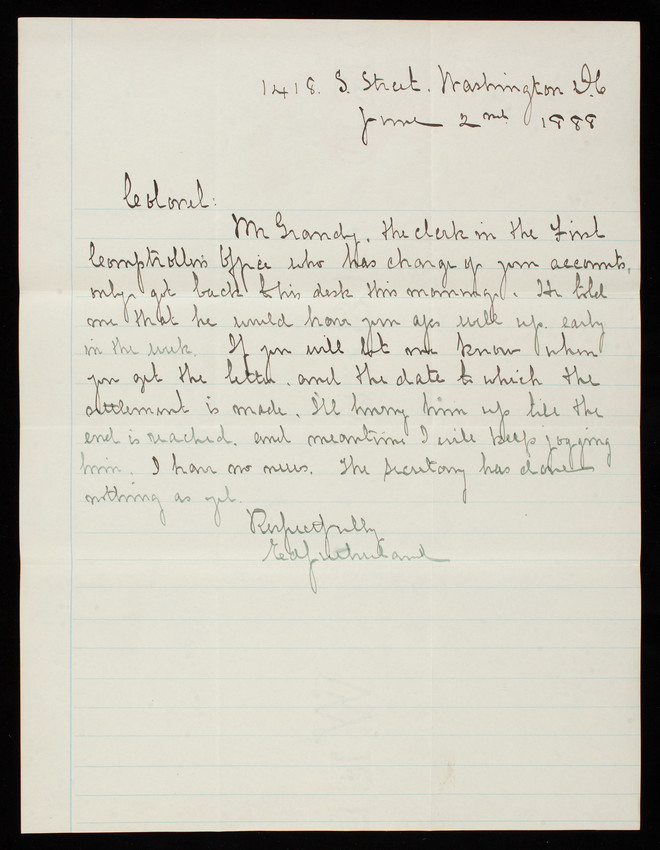 1418. S. Street. Washington D.C
June 2nd 1888
Colonel:
Mr Grandy, the clerk in the First
Comptroller's Office who has charge of your accounts,
only got back to his desk this morning. He told
me that he would have your a/cs well up early
in the week. If you will let me know when
you get the letter, and the date to which the
settlement is made, I'll hurry him up till the
end is reached. and meantime I will keep jogging
him. I have no news. The Secretary has done
nothing as yet.
Respectfully
Sutherland